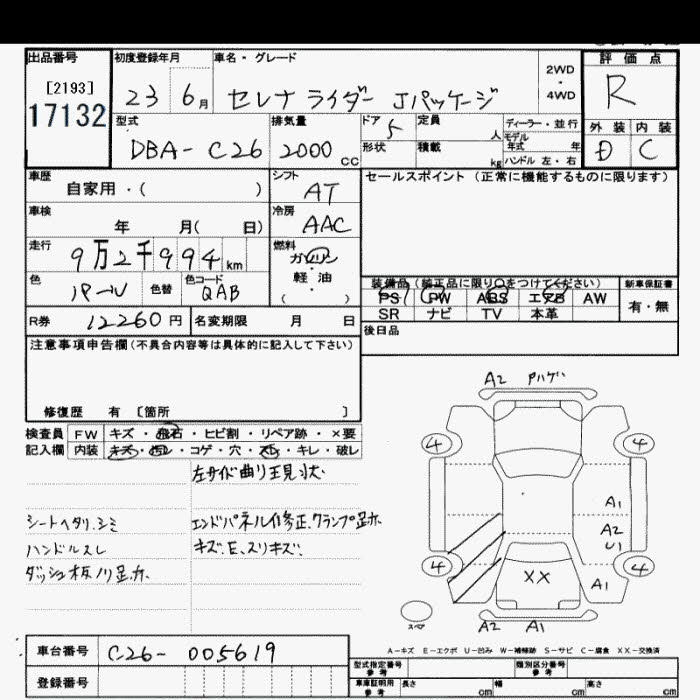 出品番号
[2193]
17132
初度登録年月
23 6月
車名・グレード
セレナ ライダー Jパッケージ
2WD
・
4WD
評価点
R
外装 内装
D C
型式
DBA-C26
排気量
2000 cc
ドア 5
形状
定員 人
積載 kg
ディーラー・並行
モデル
年式 年
ハンドル 左・右
車歴
自家用・( )
シフト
AT
セールスポイント (正常に機能するものに限ります)
車検
年 月( 日)
冷房
AAC
走行
9万2千994km
燃料
ガソリン
・
軽油
( )
色
パール
色替
色コード
QAB
装備品 (純正品に限り○をつけてください)
PS PW ABS エアB AW
SR ナビ TV 本革
新車保証書
有・無
R券 12260円
名変期限 月 日
後日品
注意事項申告欄(不具合内容等は具体的に記入して下さい)
修復歴 有 〔箇所 〕
検査員
記入欄
FW キズ・飛石・ヒビ割・リペア跡・×要
内装 キズ・汚レ・コゲ・穴・スレ・キレ・破レ
左サイド曲り現状
シートヘタリ、シミ
ハンドルスレ
ダッシュ板ノリ跡
エンドパネル修正、クランプ跡
キズ、E、スリキズ
A2 Pハゲ
4 4
A1
A2
U1
4 4
XX
A1
スペア
A2 A1
A-キズ E-エクボ U-凹み W-補修跡 S-サビ C-腐食 XX-交換済
車台番号 C26-005619
登録番号
型式指定番号
参考
類別区分番号
参考
車庫証明用
参考
長さ cm
幅 cm
高さ cm